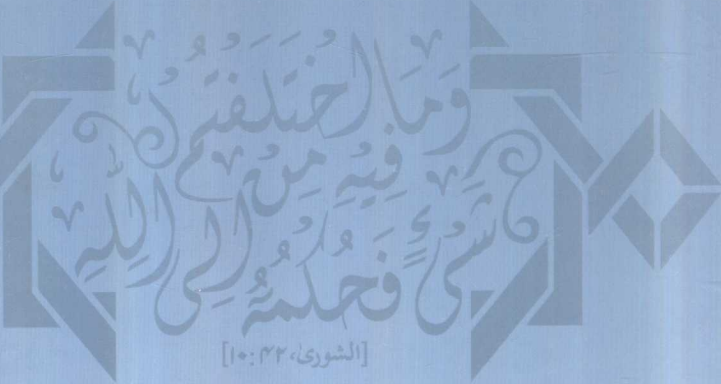 وَمَا اخْتَلَفْتُمْ
فِيْهِ مِنْ
شَيْءٍ فَحُكْمُهٗ اِلَى اللّٰهِ
[الشوریٰ، ۴۲: ۱۰]